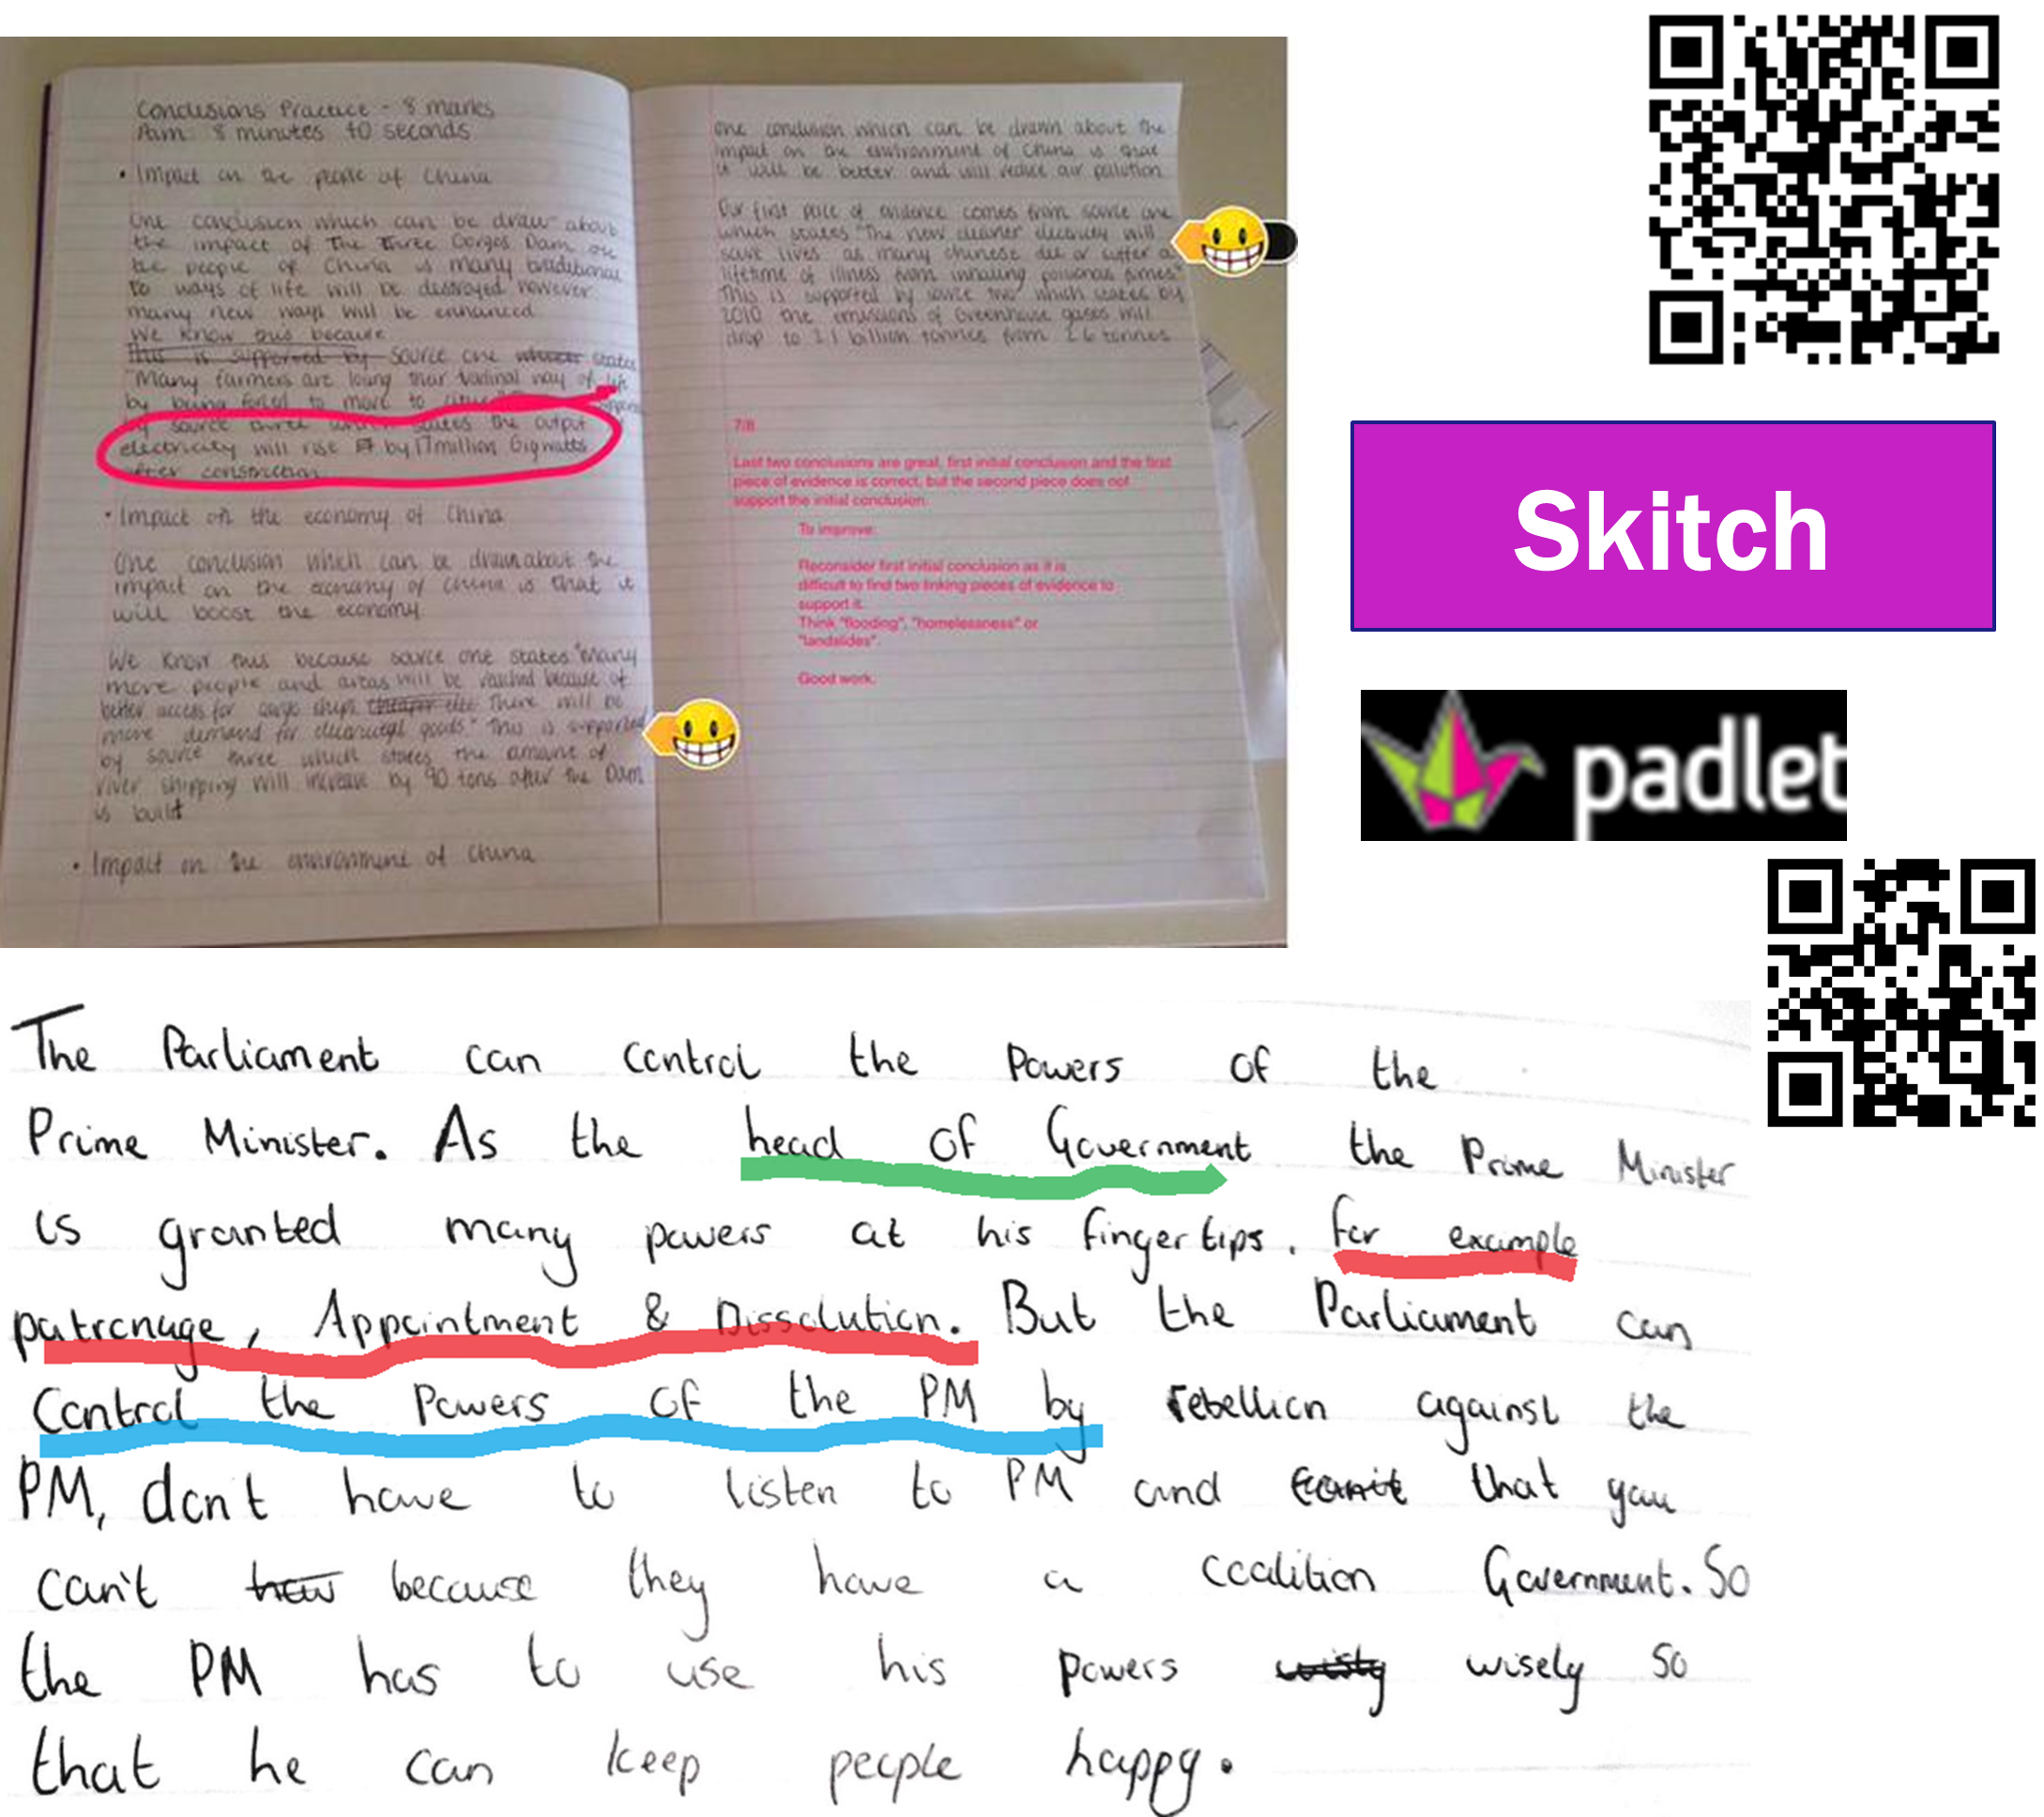 Conclusions Practice - 8 marks
Aim 8 minutes 40 seconds
• Impact on the people of China
One conclusion which can be draw about
the impact of The Three Gorges Dam on
the people of China is many traditional
to ways of life will be destroyed however
many new ways will be enhanced
We know this because
this is supported by source one states
"Many farmers are losing thar tadinal way of life
by being forced to move to
by source three states the output
electricity will rise by 17million Gigwatts
after construction
• Impact on the economy of China
One conclusion which can be drawn about the
impact on the economy of China is that it
will boost the economy
We know this because source one states "many
more people and areas will be reached because of
better access for cargo ships there will be
more demand for electrical goods" This is supported
by source three which states the amount of
river shipping will increase by 90 tons after the Dam
is built
• Impact on the environment of China
One conclusion which can be drawn about the
impact on the environment of China is that
it will be better and will reduce air pollution
Our first peice of evidence comes from source one
which states "The new cleaner electricity will
save lives as many chinese die or suffer a
lifetime of illness from inhaling poisonous fumes"
This is supported by source two which states by
2010 the emissions of Greenhouse gases will
drop to 2.1 billion tonnes from 2.6 tonnes
7/8
Last two conclusions are great, first initial conclusion and the first
piece of evidence is correct, but the second piece does not
support the initial conclusion.
To improve:
Reconsider first initial conclusion as it is
difficult to find two linking pieces of evidence to
support it.
Think "flooding", "homelessness" or
"landslides".
Good work.
Skitch
padlet
The Parliament can control the Powers of the
Prime Minister. As the head of Government the Prime Minister
is granted many powers at his fingertips. for example
patronage, Appointment & Dissolution. But the Parliament can
Control the Powers of the PM by rebellion against the
PM, don't have to listen to PM and that you
can't how because they have a coalition Government. So
the PM has to use his powers wisely so
that he can keep people happy.